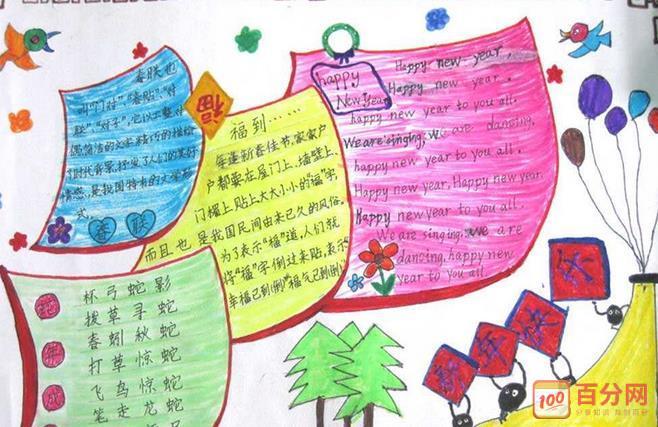 春联也
叫"门对""春贴""对
联""对子",它以工整对
偶简洁的文字精巧的描绘
了时代背景,抒发了人们的美好
情感,是我国特有的文学形
式。
春 联
福
福到……
每逢新春佳节,家家户
户都要在屋门上、墙壁上、
门楣上,贴上大大小小的"福"字,
而且也是我国民间由来已久的风俗。
为了表示"福"道,人们就
将"福"字倒过来贴,表示
幸福已到(倒)"福气已到(倒)
happy
New Year
Happy new year,
Happy new year.
happy new year to you all.
We are singing, we are dancing,
happy new year to you all.
Happy new year, Happy new year,
Happy new year to you all.
We are singing, we are
dancing, happy new
year to you all.
年
成
杯弓蛇影
拨草寻蛇
春蚓秋蛇
打草惊蛇
飞鸟惊蛇
笔走龙蛇
快
100 百分网